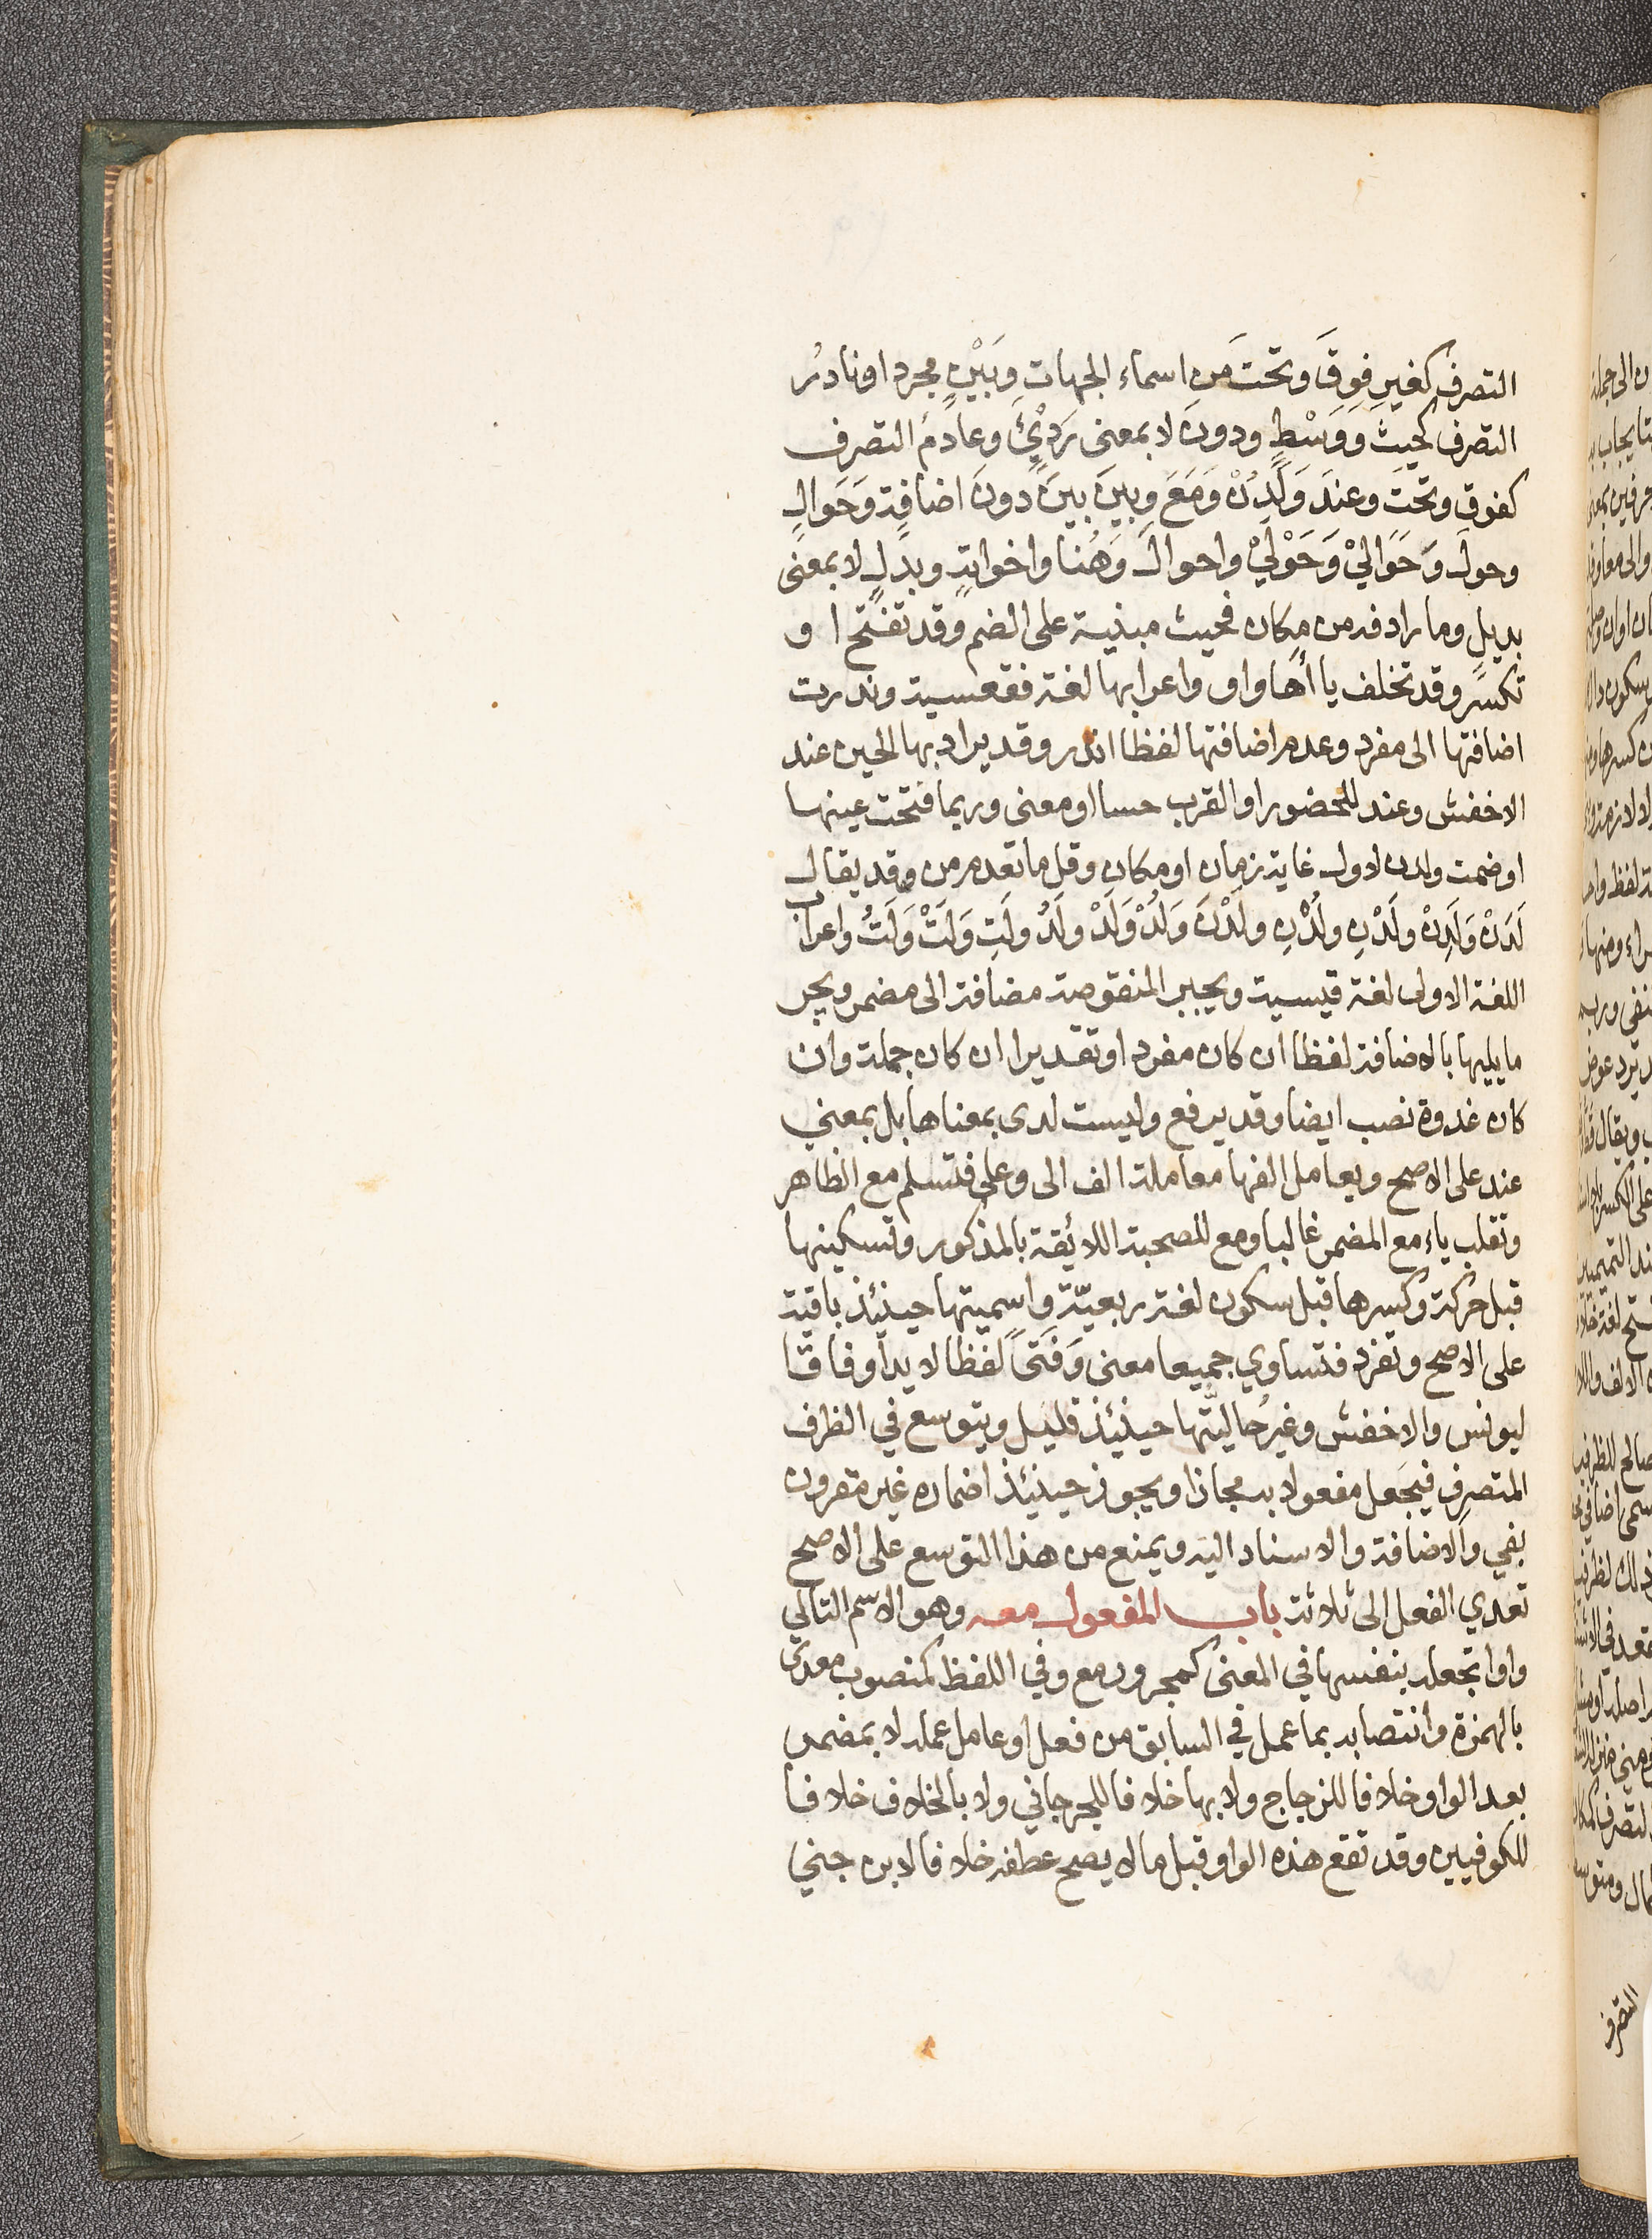 التصرف كغيرِ فوقَ وتحتَ مَن اسماء الجهاتِ وبَيْنٍ مجرد او نادرُ
التصرف كحيثَ وَوَسْطٍ ودونَ لا بمعنى رَدْيٍّ وعادمُ التصرف
كفوق وتحتَ وعندَ وَلَدُنْ وَمَعَ وبينَ بينَ دونَ اضافةٍ وَحَوالِ
وحولَ وَحَوَاليْ وَحَوْليْ واحوالَ وَهُنا واخواتهِ وبدلٍ لا بمعنى
بديلٍ وما رادفه من مكان فحيث مبنية على الضم وقد تفتح او
تكسر وقد تخلف ياأها واو واعرابها لغة فقعسية وندرت
اضافتها الى مفرد وعدم اضافتها لفظا اندر وقد يراد بها الحين عند
الاخفش وعند للحضور او القرب حسا او معنى وربما فتحت عينها
او ضمت ولدن لاول غاية زمان او مكان وقل ما تعدم من وقد يقال
لَدَنْ وَلَدِنْ ولَدْنِ ولُدْنِ ولَدْنَ وَلُدْ وَلَدْ ولَدُ ولَتِ وَلَتْ وَلَتُ واعراب
اللغة الاولى لغة قيسية ويجبر المنقوصة مضافة الى مضمر ويجر
ما يليها بالاضافة لفظا ان كان مفرد او تقديرا ان كان جملة وان
كان غدوة نصب ايضا وقد يرفع وليست لدى بمعناها بل بمعني
عند على الاصح ويعامل الفها معاملة الف الى وعلى فتسلم مع الظاهر
وتقلب ياء مع المضمر غالبا ومع للصحبة اللائقة بالمذكور وتسكينها
قبل حركة وكسرها قبل سكون لغة ربعيّة واسميتها حينئذ باقية
على الاصح وتفرد فتساوي جميعا معنى وَفَتًى لفظا لا يدا وفاقا
ليونس والاخفش وغيرُ حاليتها حينئذ قليل ويتوسع في الظرف
المتصرف فيجعل مفعولا به مجازا ويجوز حينئذ اضماره غير مقرون
بفي والاضافة والاسناد اليه ويمنع من هذا التوسع على الاصح
تعدي الفعل الى ثلاثة باب المفعول معه وهو الاسم التالي
واوا تجعله بنفسها في المعنى كمجرور مع وفي اللفظ كمنصوب معدى
بالهمزة وانتصابه بما عمل في السابق من فعل او عامل عمله لا بمضمر
بعد الواو خلافا للزجاج ولا بها خلافا للجرجاني ولا بالخلاف خلافا
للكوفيين وقد تقع هذه الواو قبل ما لا يصح عطفه خلافا لابن جني
التصرف